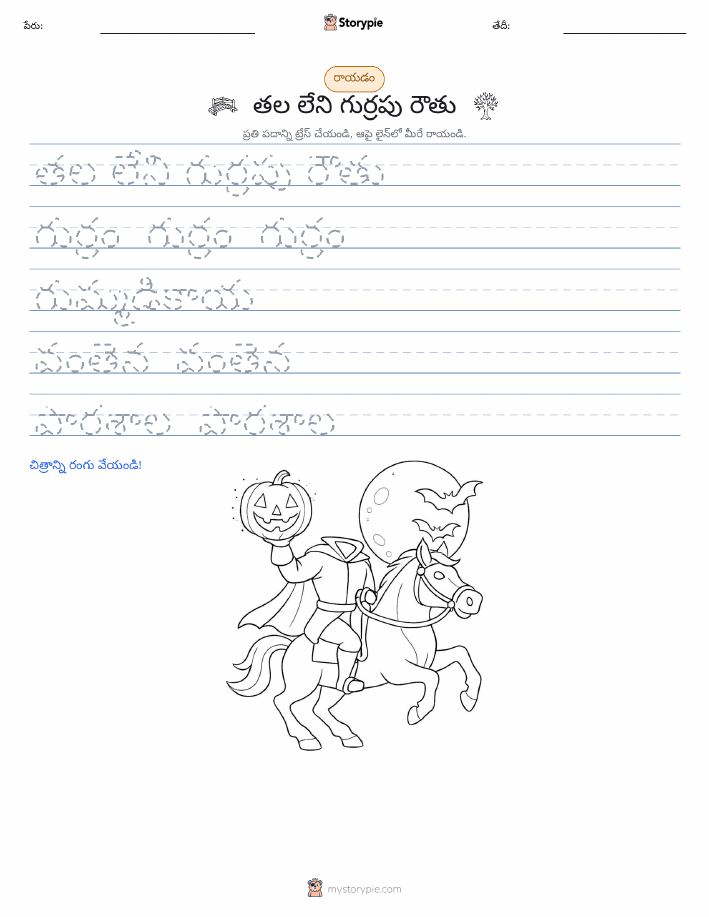 పేరు:
Storypie
తేదీ:
రాయడం
తల లేని గుర్రపు రౌతు
ప్రతి పదాన్ని ట్రేస్ చేయండి, ఆపై లైన్‌లో మీరే రాయండి.
తల లేని గుర్రపు రౌతు
గుర్రం గుర్రం గుర్రం
గుమ్మడికాయ
వంతెన వంతెన
పాఠశాల పాఠశాల
చిత్రాన్ని రంగు వేయండి!
mystorypie.com